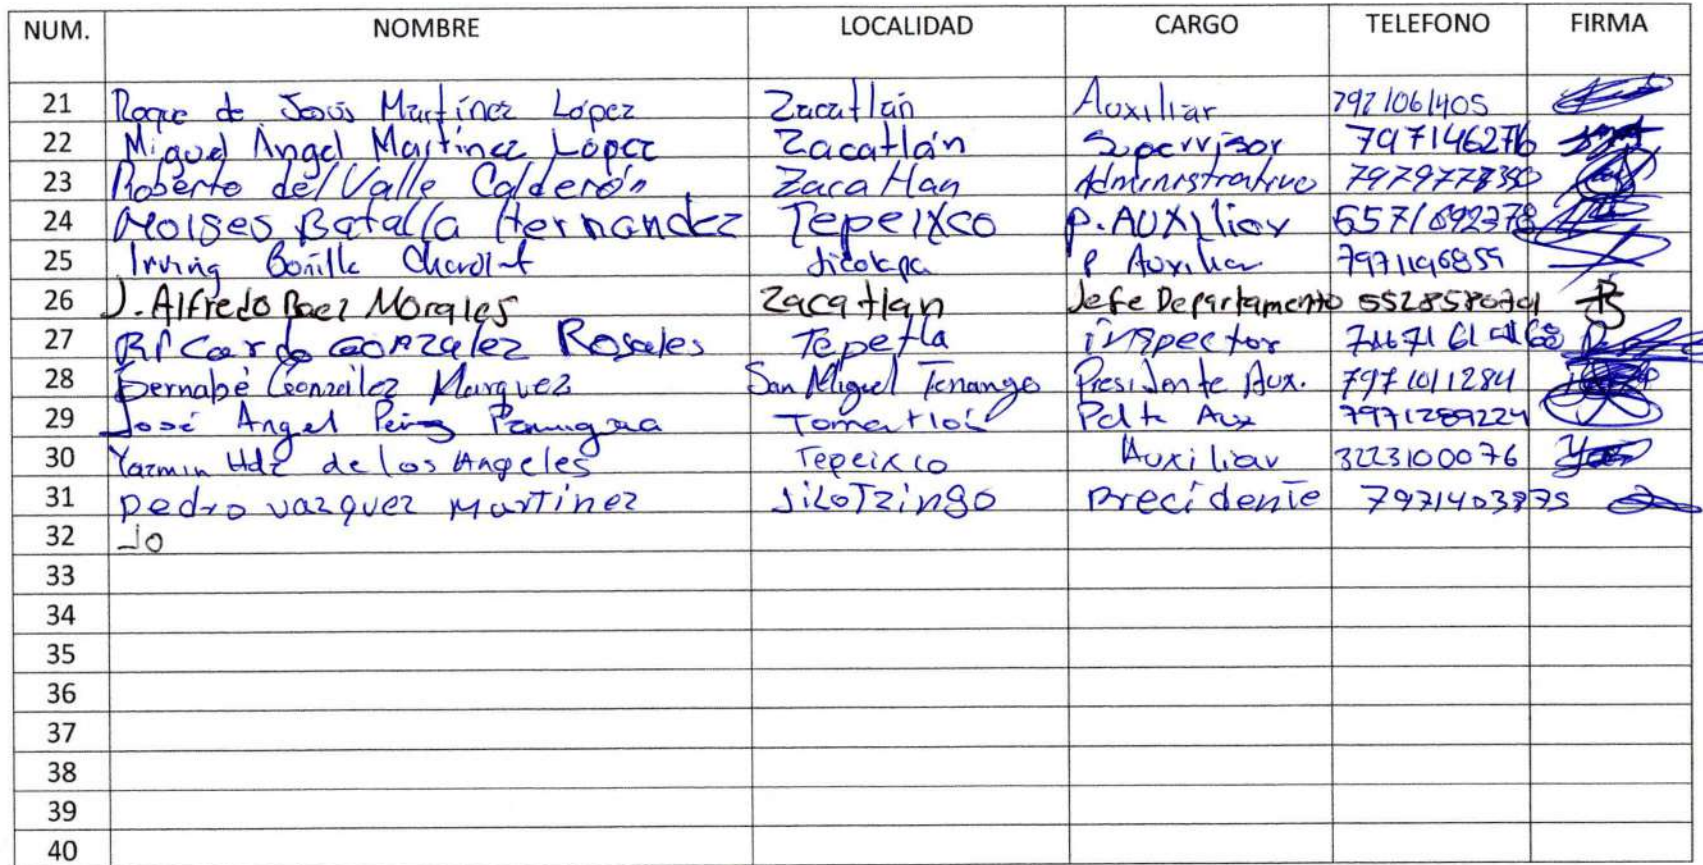 NUM. NOMBRE LOCALIDAD CARGO TELEFONO FIRMA
21 Roque de Jesús Martínez López Zacatlán Auxiliar 7971061405
22 Miguel Ángel Martínez López Zacatlán Supervisor 7971146276
23 Roberto del Valle Calderón Zacatlan Administrativo 7979778350
24 Moises Batalla Hernandez Tepeixco P. AUXiliar
25 Irving Bonilla P Auxiliar 7971196859
26 J. Alfredo Baez Morales Zacatlan Jefe Departamento
27 RiCardo GONzalez Rosales Tepetla inspector
28 Bernabé González Marquez San Miguel Tenango Presidente Aux. 7971011284
29 José Angel Tomatlán Pdte Aux 7971289224
30 Yazmin Hdz de los Angeles Tepeixco Auxiliar 3223100076
31 pedro vazquez Martinez JiloTzingo precidente 7971403875
32 Jo
33
34
35
36
37
38
39
40